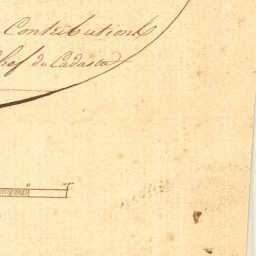 Contributions
Chef du Cadastre